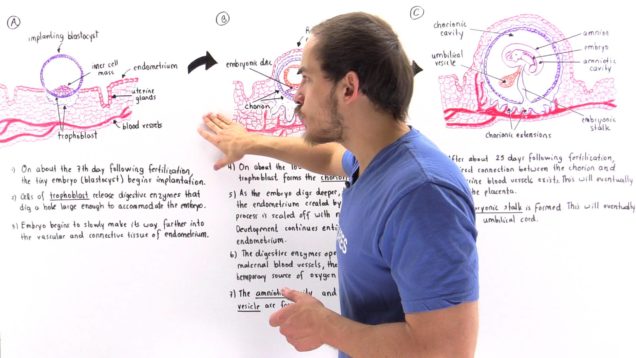 A
implanting blastocyst
inner cell mass
endometrium
uterine glands
trophoblast
blood vessels
1) On about the 7th day following fertilization,
the tiny embryo (blastocyst) begins implantation.
2) Cells of trophoblast release digestive enzymes that
dig a hole large enough to accomodate the embryo.
3) Embryo begins to slowly make its way further into
the vascular and connective tissue of endometrium.
B
embryonic disc
chorion
4) On about the
trophoblast forms the
5) As the embryo digs deeper,
the endometrium created by
process is sealed off with
Development continues
endometrium.
6) The digestive enzymes
maternal blood vessels,
temporary source of oxygen
7) The amniotic cavity and
vesicle are
C
chorionic cavity
umbilical vesicle
amnion
embryo
amniotic cavity
embryonic stalk
chorionic extensions
After about 25 days following fertilization,
connection between the chorion and
blood vessels exists. This will eventually
the placenta.
stalk is formed. This will eventually
umbilical cord.